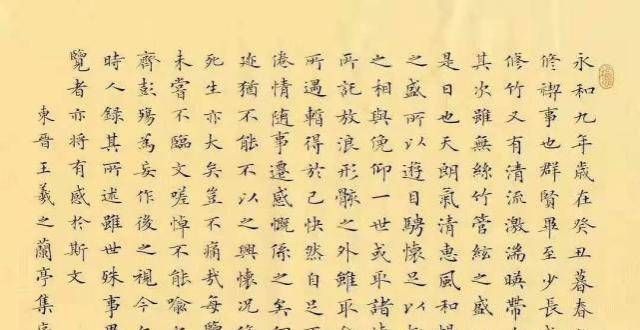 永和九年歲在癸丑暮春
修禊事也群賢畢至少長咸
修竹又有清流激湍暎帶
其次雖無絲竹管絃之盛
是日也天朗氣清惠風和暢
之盛所以遊目騁懷足以
之相與俛仰一世或取諸
所託放浪形骸之外雖取
所遇輒得於己快然自足
倦情随事遷感慨係之矣
迹猶不能不以之興懷況
死生亦大矣豈不痛哉每
未嘗不臨文嗟悼不能喻
齊彭殤為妄作後之視今
時人録其所述雖世殊事異
覽者亦将有感於斯文
東晉王羲之蘭亭集序